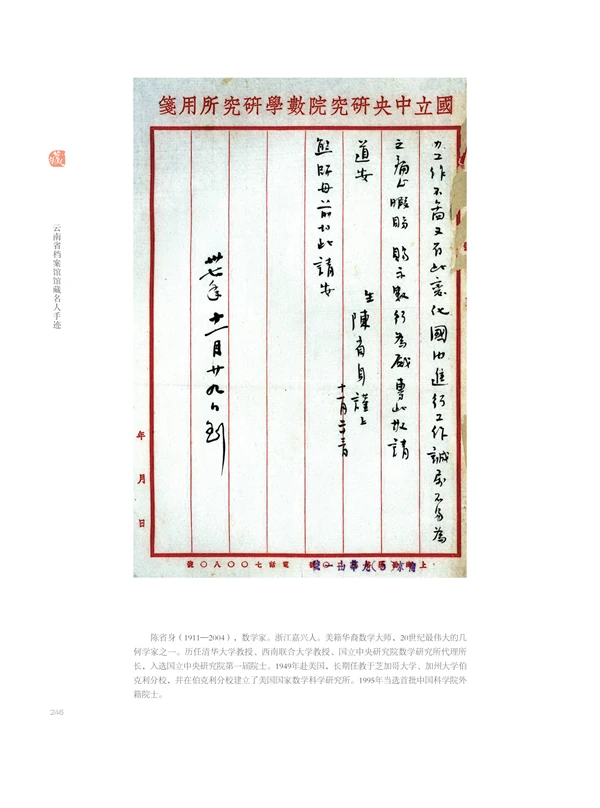 國立中央研究院數學研究所用箋
力工作不啻又有此變化國內進行工作誠屬不易為
之痛心暇時 賜示數行為感專此敬請
道安
生陳省身謹上
十一月二十二日
熊師母前均此請安
卅七年十一月廿九日到
年 月 日
號〇八〇〇七話電
藏
云南省档案馆馆藏名人手迹
陈省身（1911—2004），数学家。浙江嘉兴人。美籍华裔数学大师，20世纪最伟大的几
何学家之一。历任清华大学教授、西南联合大学教授、国立中央研究院数学研究所代理所
长，入选国立中央研究院第一届院士。1949年赴美国，长期任教于芝加哥大学、加州大学伯
克利分校，并在伯克利分校建立了美国国家数学科学研究所。1995年当选首批中国科学院外
籍院士。
246